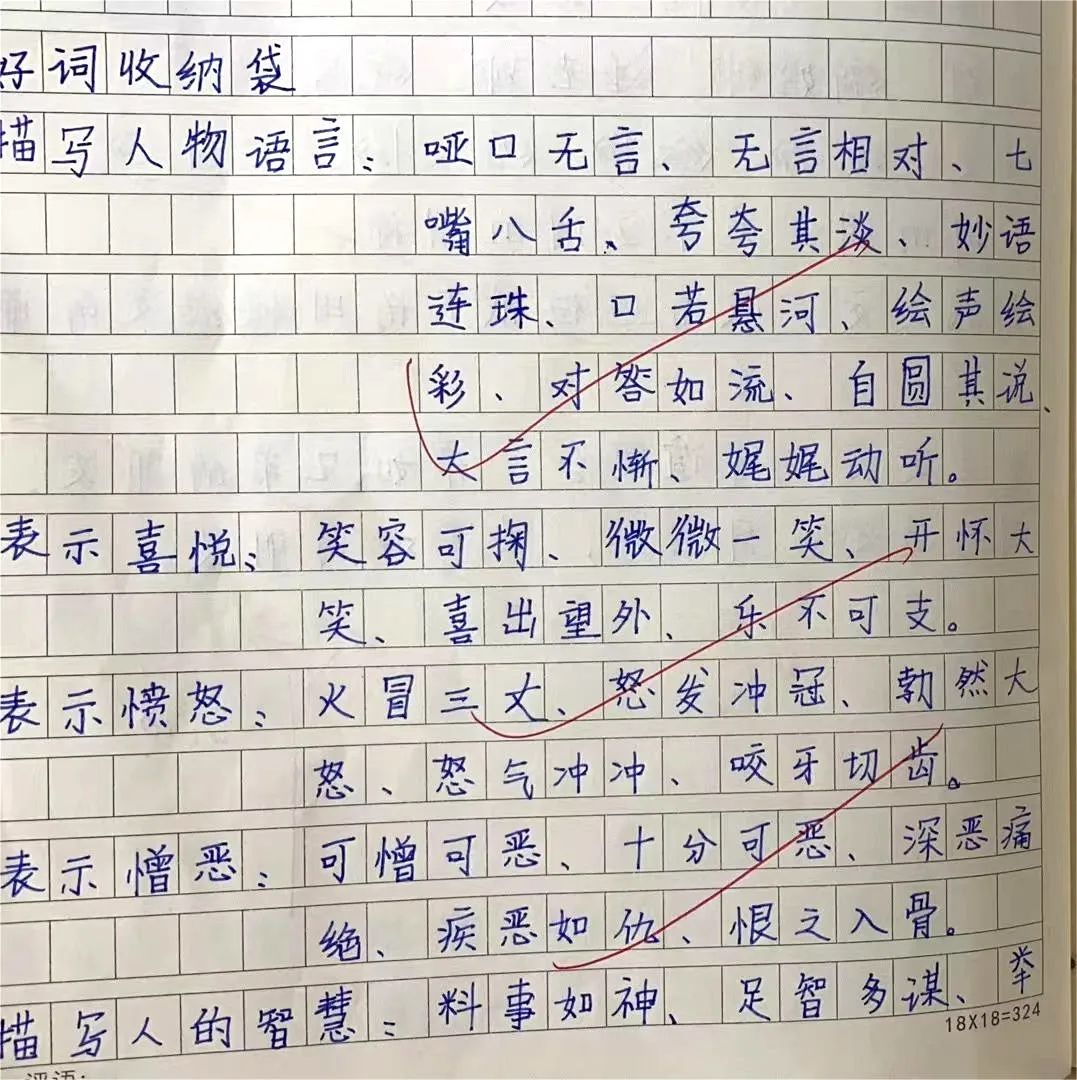 好词收纳袋
描写人物语言：哑口无言、无言相对、七
嘴八舌、夸夸其淡、妙语
连珠、口若悬河、绘声绘
彩、对答如流、自圆其说、
大言不惭、娓娓动听。
表示喜悦：笑容可掬、微微一笑、开怀大
笑、喜出望外、乐不可支。
表示愤怒：火冒三丈、怒发冲冠、勃然大
怒、怒气冲冲、咬牙切齿。
表示憎恶：可憎可恶、十分可恶、深恶痛
绝、疾恶如仇、恨之入骨。
描写人的智慧：料事如神、足智多谋、举
18X18=324
评语：